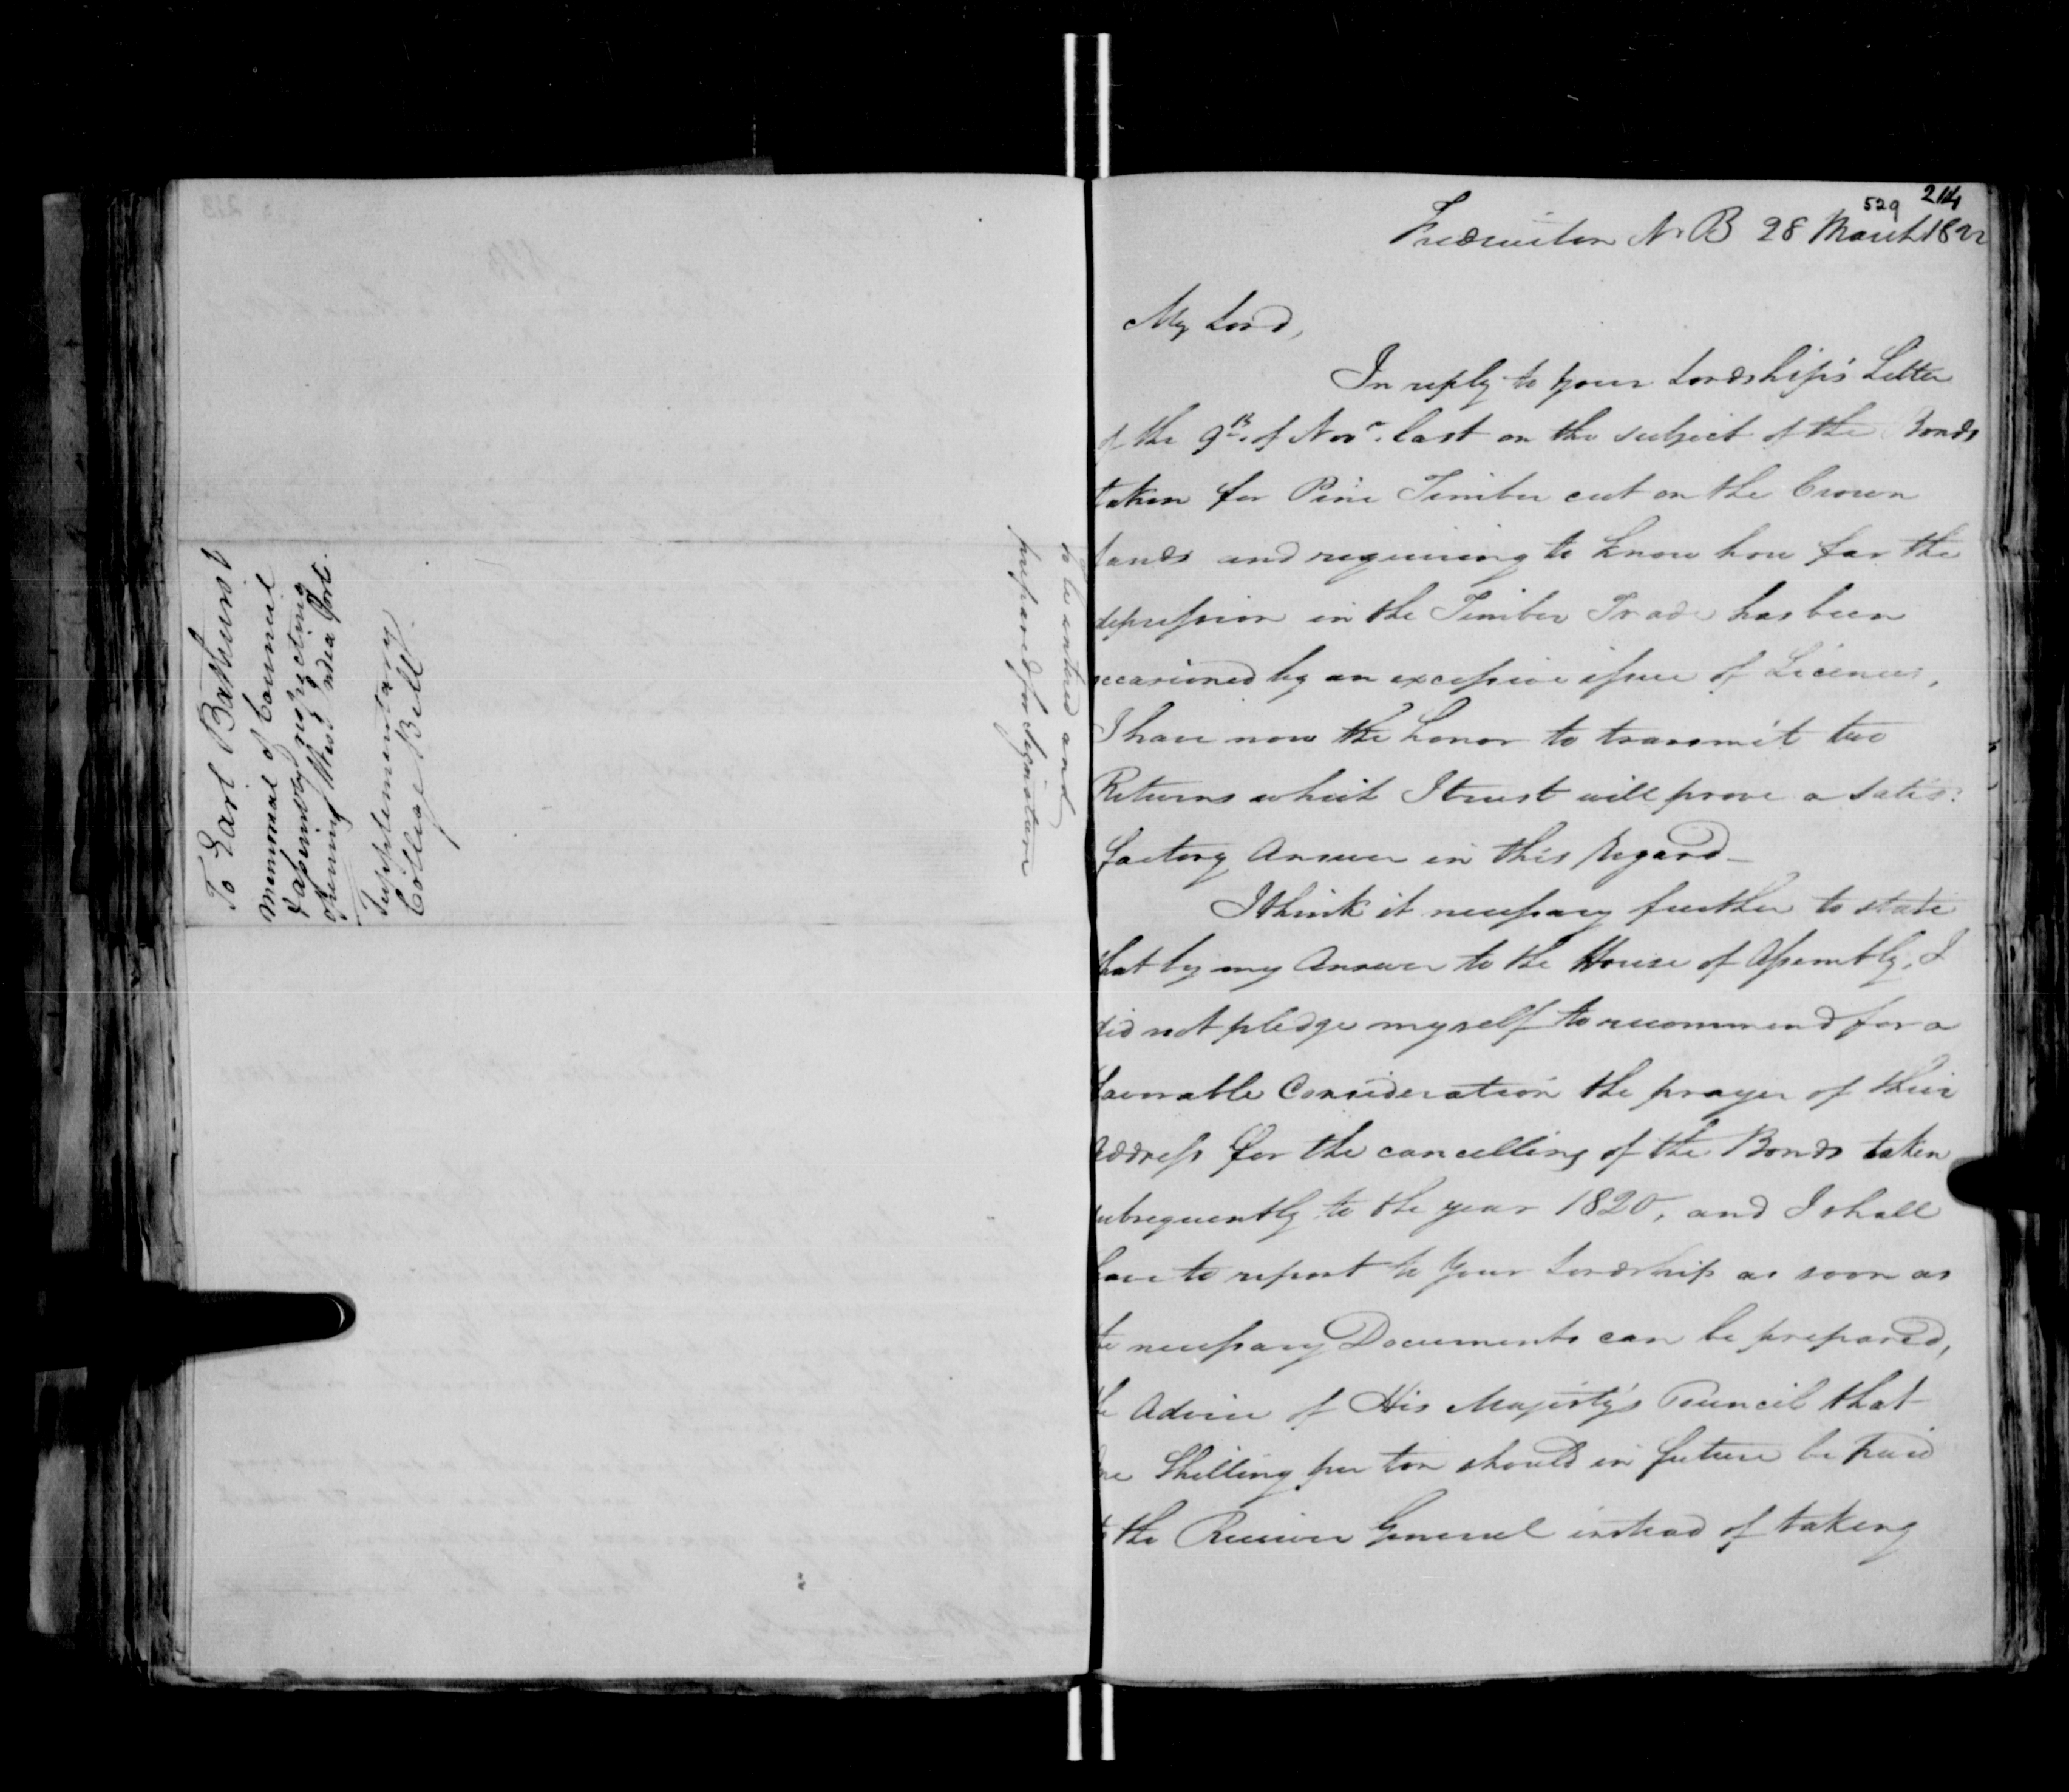 To Earl Bathurst
Memorial of Council
& Assembly respecting
opening West India Ports.
Supplementary
College Bill.
to be entered and
prepared for Signature
529 214
Fredericton N. B 28 March 1822
My Lord,
In reply to Your Lordship's Letter
of the 9th. of Novr. last on the subject of the Bonds
taken for Pine Timber cut on the Crown
Lands and requiring to know how far the
depression in the Timber Trade has been
occasioned by an excessive issue of Licences,
I have now the honor to transmit two
Returns which I trust will prove a satis:
factory Answer in this regard_
I think it necessary further to state
that by my Answer to the House of Assembly, I
did not pledge myself to recommend for a
favorable Consideration the prayer of their
Address for the cancelling of the Bonds taken
subsequently to the year 1820, and I shall
have to report to Your Lordship as soon as
the necessary Documents can be prepared,
the Advice of His Majesty's Council that
One Shilling per ton should in future be paid
to the Receiver General instead of taking